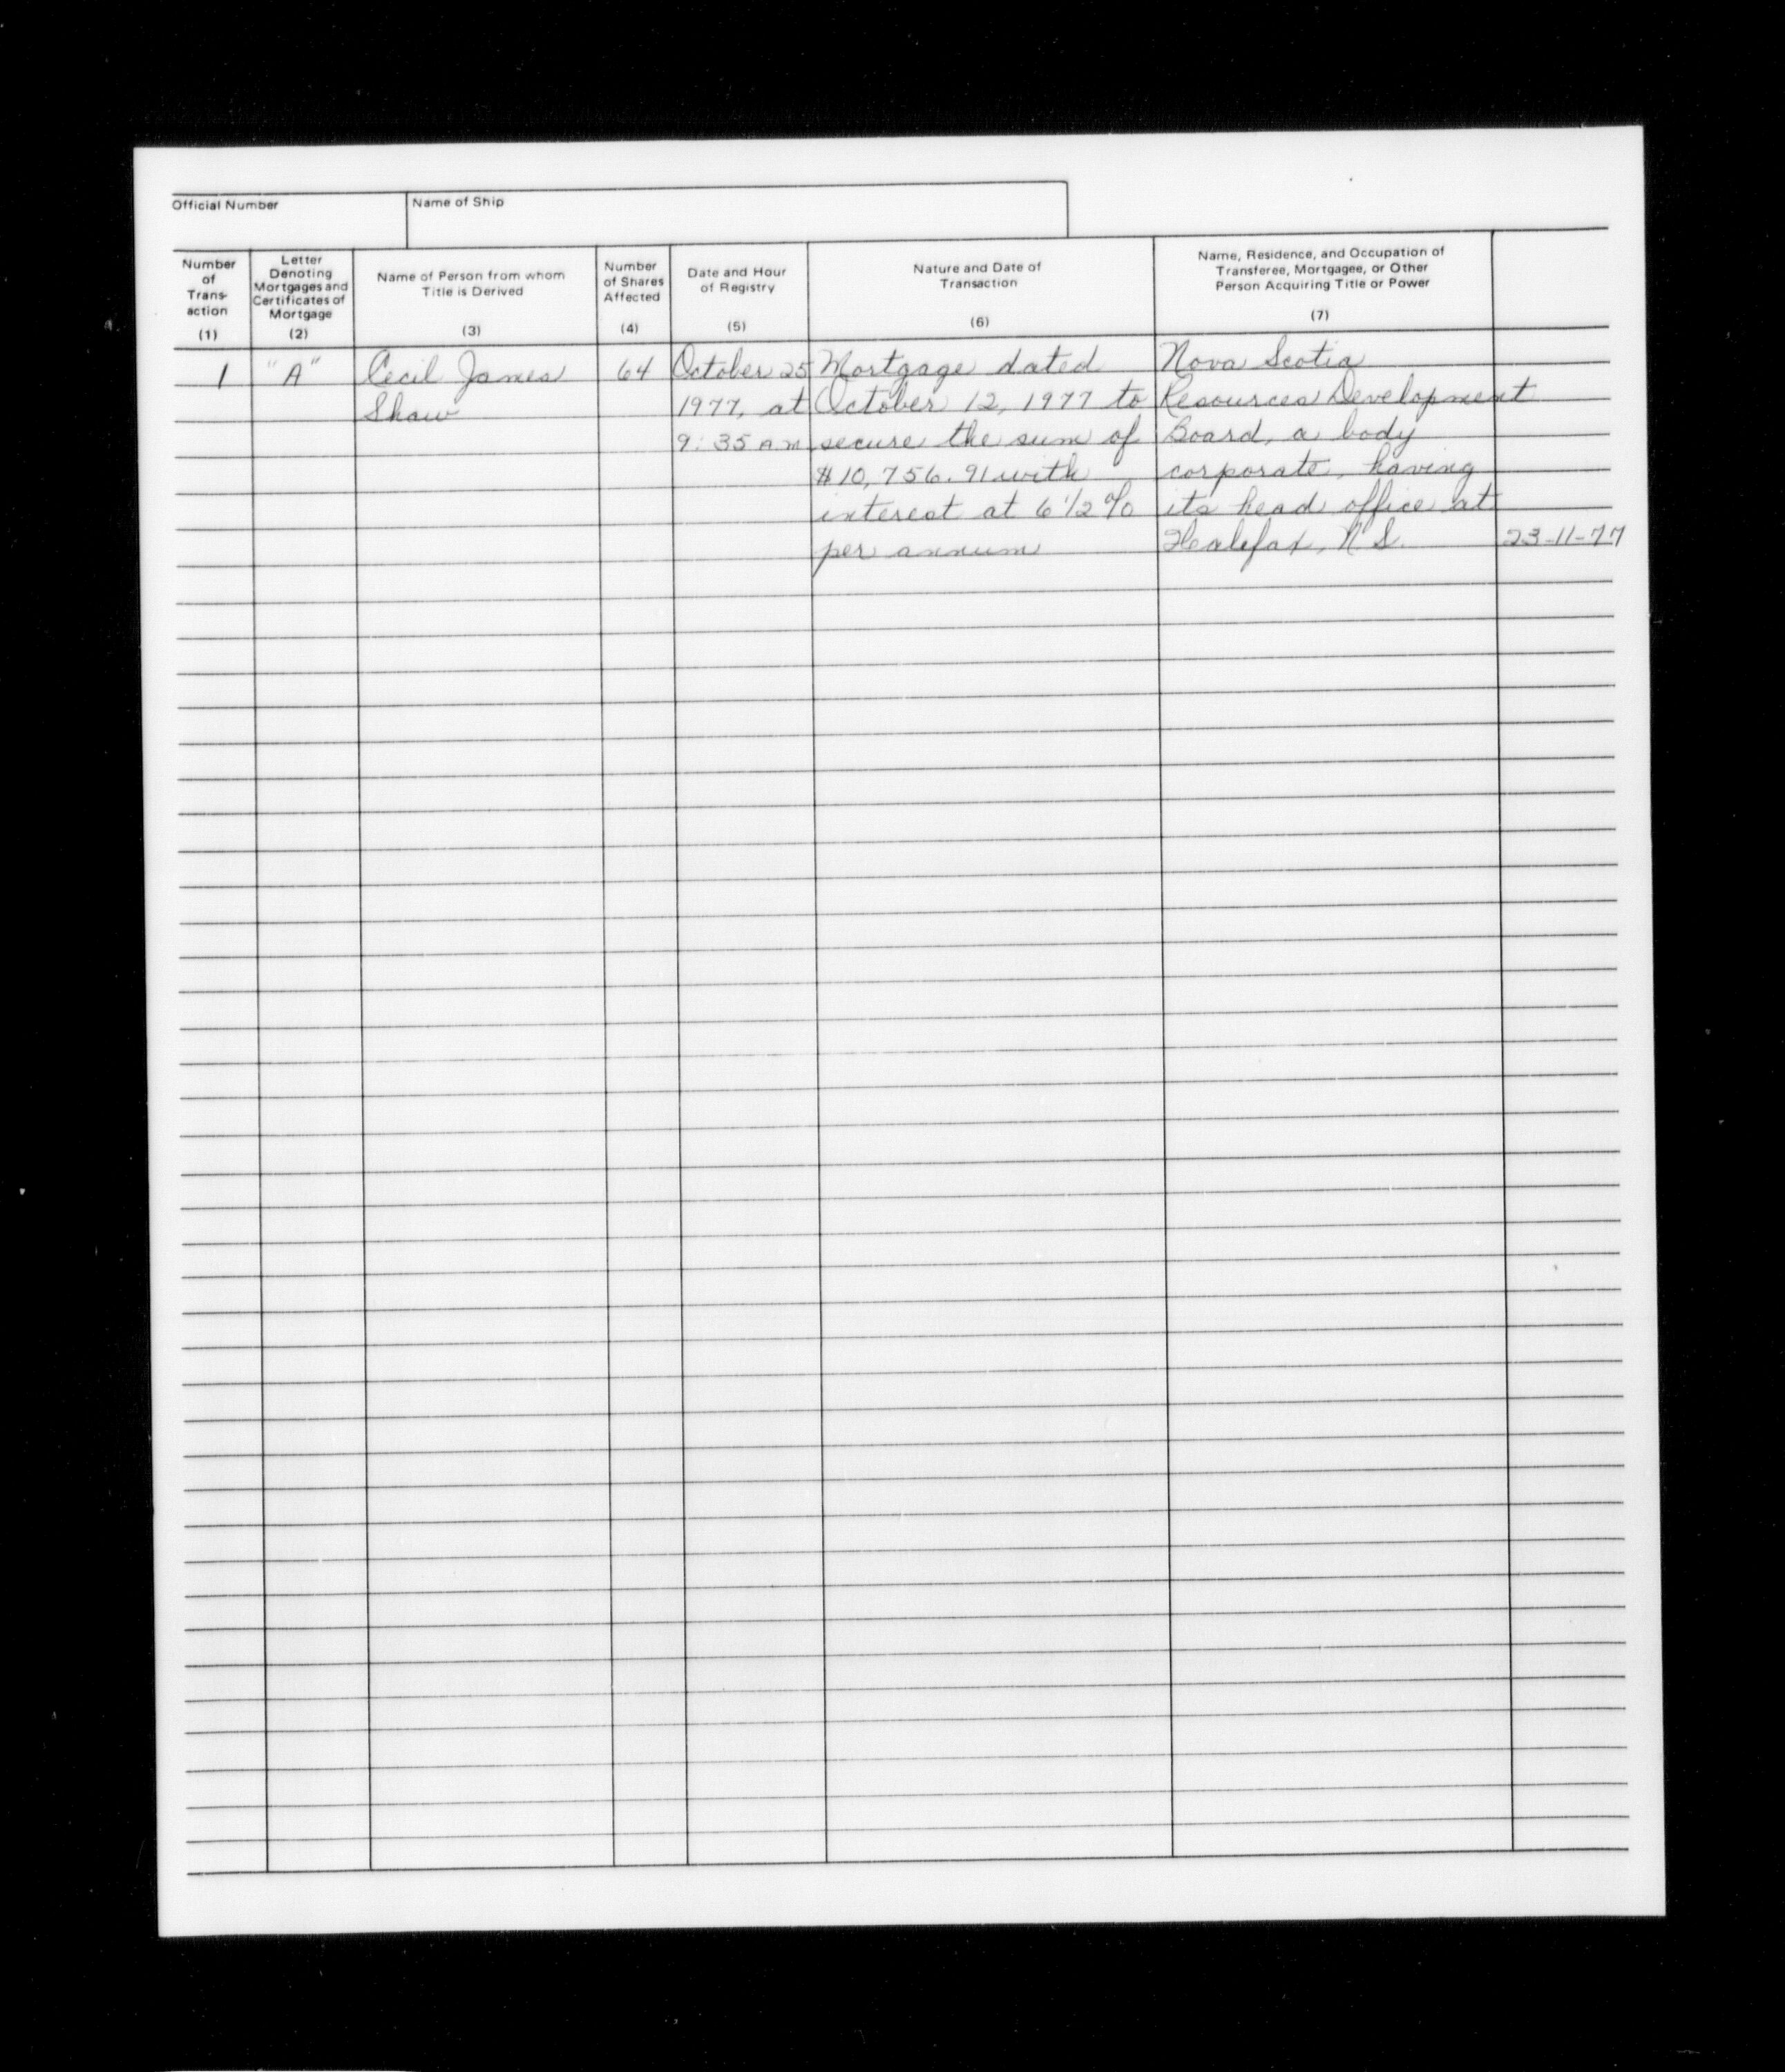 Official Number
Name of Ship
Number of Trans- action (1)
Letter Denoting Mortgages and Certificates of Mortgage (2)
Name of Person from whom Title is Derived (3)
Number of Shares Affected (4)
Date and Hour of Registry (5)
Nature and Date of Transaction (6)
Name, Residence, and Occupation of Transferee, Mortgagee, or Other Person Acquiring Title or Power (7)
1 "A" Cecil James 64 October 25 Mortgage dated Nova Scotia
Shaw 1977, at October 12, 1977 to Resources Development
9:35 am secure the sum of Board, a body
$10,756.91 with corporate, having
interest at 6 1/2 % its head office at
per annum Halifax, N.S. 23-11-77